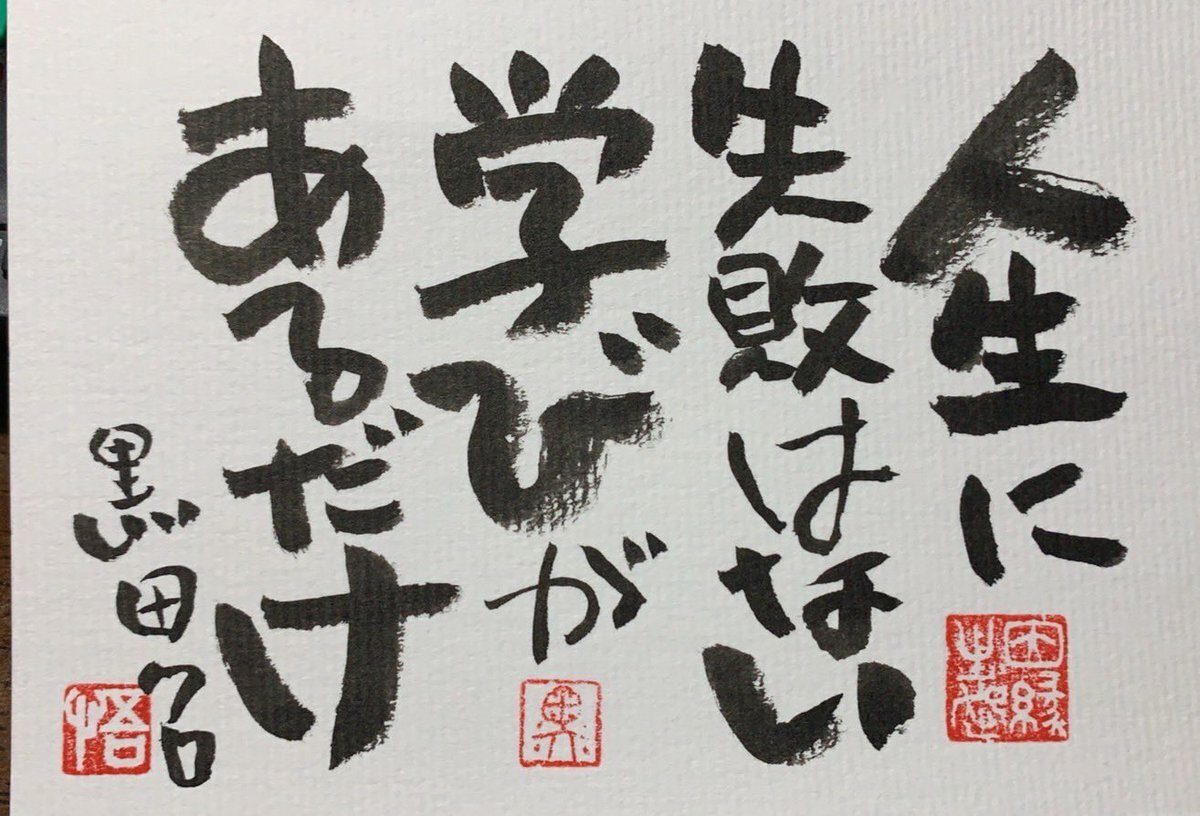 人生に
失敗はない
学びが
あるだけ
黒田クロ
悟